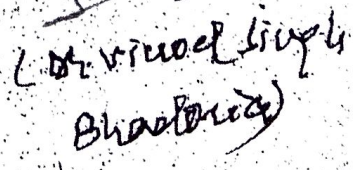 (Dr. Vinod Singh
Bhadoria)